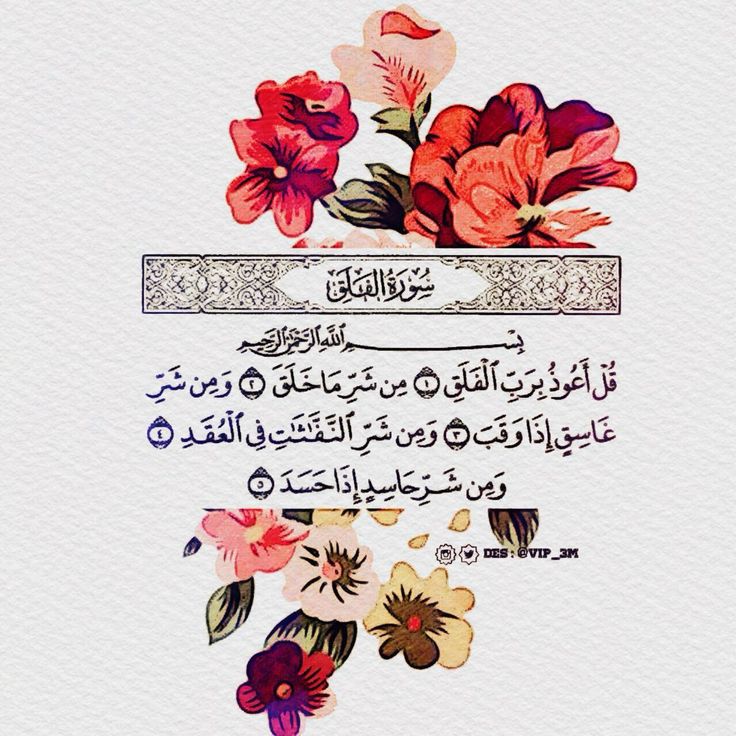 سُورَةُ الفَلَق
بِسْمِ ٱللَّهِ ٱلرَّحْمَٰنِ ٱلرَّحِيمِ
قُلْ أَعُوذُ بِرَبِّ ٱلْفَلَقِ ١ مِن شَرِّ مَا خَلَقَ ٢ وَمِن شَرِّ
غَاسِقٍ إِذَا وَقَبَ ٣ وَمِن شَرِّ ٱلنَّفَّٰثَٰتِ فِي ٱلْعُقَدِ ٤
وَمِن شَرِّ حَاسِدٍ إِذَا حَسَدَ ٥
DES:@VIP_3M